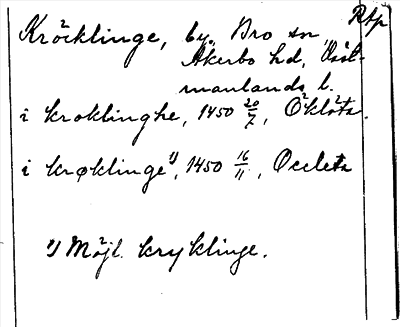 Rtp
Kröcklinge, by, Bro sn,
Åkerbo hd, Väst-
manlands l.
i kroklinghe, 1450 20/7, Öklöta.
i krøklinge 1), 1450 16/11, Öcclöta
1) Möjl. kryklinge.